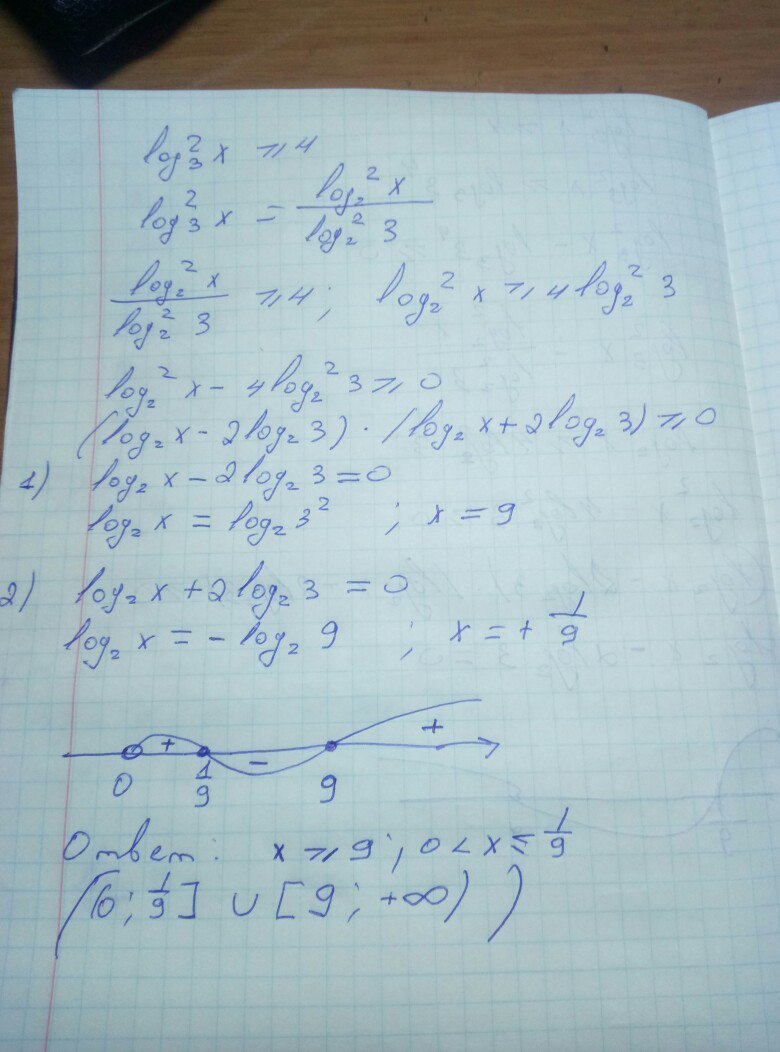 log₃² x ⩾ 4
log₃² x = log₂² x / log₂² 3
log₂² x / log₂² 3 ⩾ 4; log₂² x ⩾ 4 log₂² 3
log₂² x - 4 log₂² 3 ⩾ 0
(log₂ x - 2 log₂ 3) · (log₂ x + 2 log₂ 3) ⩾ 0
1) log₂ x - 2 log₂ 3 = 0
log₂ x = log₂ 3² ; x = 9
2) log₂ x + 2 log₂ 3 = 0
log₂ x = - log₂ 9 ; x = + 1/9
+ - +
0 1/9 9
Ответ: x ⩾ 9; 0 < x ≤ 1/9
((0; 1/9] ∪ [9; +∞))